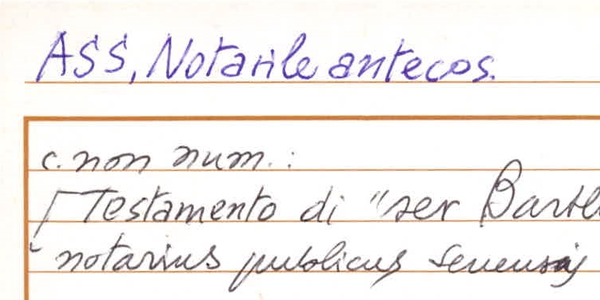 ASS, Notarile antecos.
c. non num. :
[Testamento di "ser Bartl
notarius publicus senensis